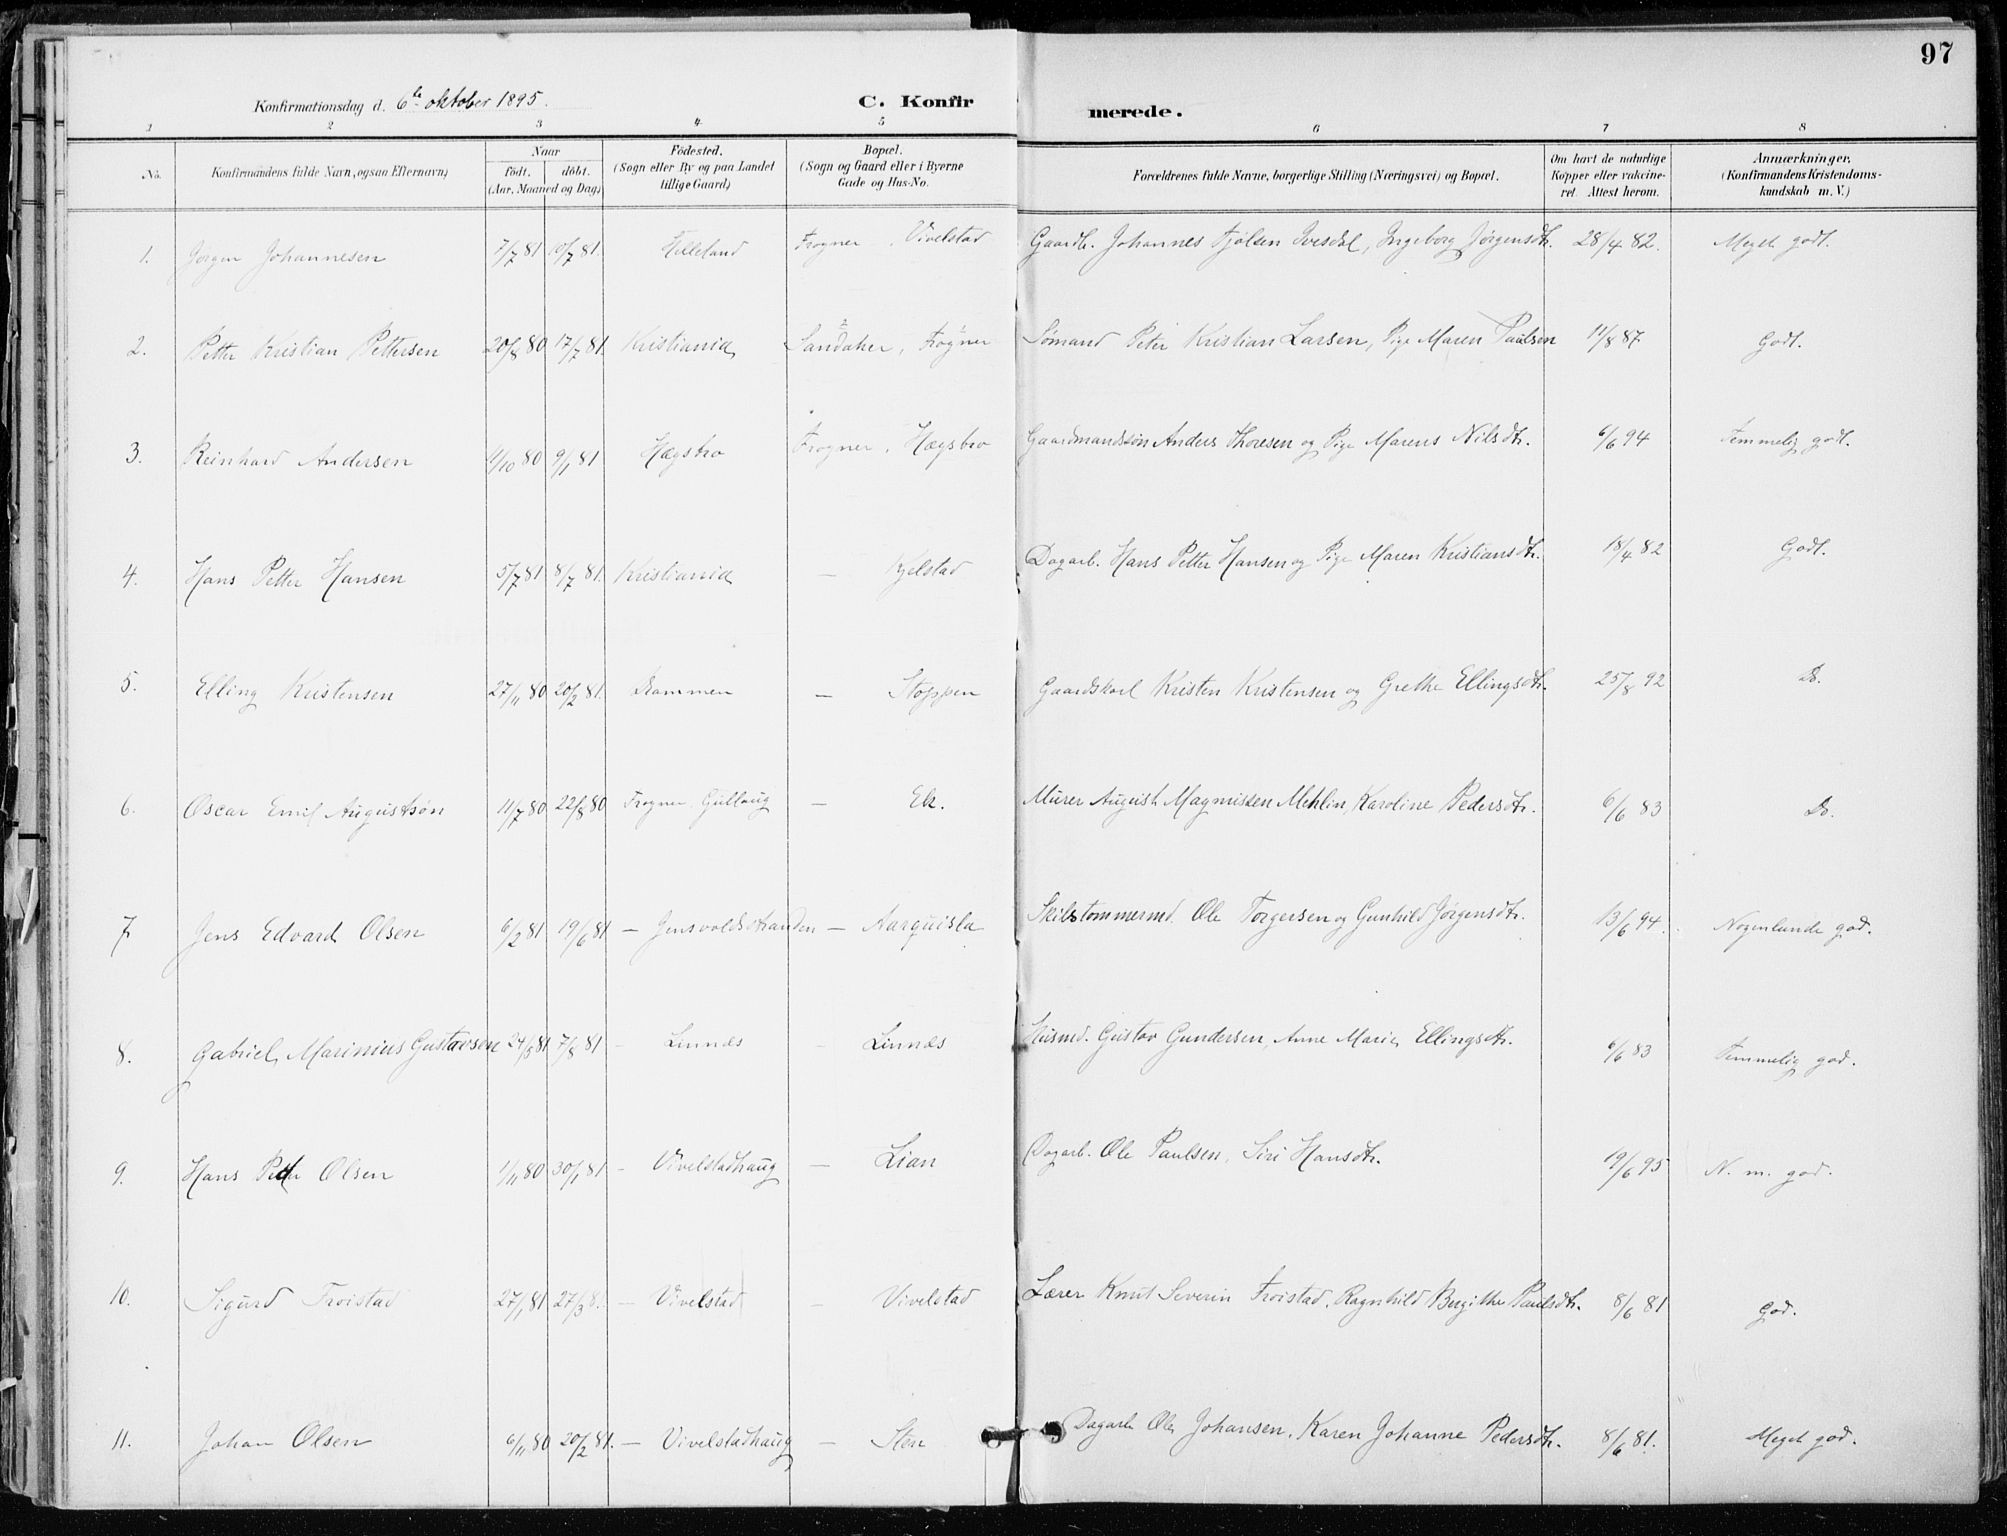 97
Konfirmationsdag d. 6te oktober 1895. C. Konfirmerede.
1 2 3 4 5 6 7 8
No. Konfirmandens fulde Navn, ogsaa Efternavn) Naar födt. döbt. (Aar, Maaned og Dag) Födested. (Sogn eller By og paa Landet tillige Gaard) Bopæl. (Sogn og Gaard eller i Byerne Gade og Hus-No. Forældrenes fulde Navne, borgerlige Stilling (Næringsvei) og Bopæl. Om havt de naturlige Kopper eller vakcineret. Attest herom. Anmærkninger, (Konfirmandens Kristendomskundskab m. V.)
1. Jørgen Johannesen 7/7 81 10/7 81. Frogner Vivelstad Gaardb. Johannes Ingeborg Jørgensdtr. 28/4 82. Meget godt.
2. Petter Kristian Pettersen 20/8 80 17/7 81. Kristiania Sandaker, Frogner Sømand Peter Kristian Larsen, Pige Maren Paulsen 11/8 87 Godt.
3. Reinhard Andersen 4/10 80 9/1 81 Hægsbro Frogner, Hægsbro Gaardmandssøn Anders Thoresen og Pige Marens Nilsdtr. 6/6 94 Temmelig godt.
4. Hans Petter Hansen 5/7 81 8/7 81. Kristiania — Kjelstad Dagarb. Hans Petter Hansen og Pige Maren Kristiansdtr. 18/4 82 Godt.
5. Elling Kristensen 27/11 80 20/2 81. Drammen — Stoppen Gaardskarl Kristen Kristensen og Grethe Ellingsdtr. 25/8 92 Do.
6. Oscar Emil Augustsøn 11/7 80 22/8 80 Frogner, Gullaug — Ek. Murer August Magnussen Mehlin, Karoline Pedersdtr. 6/6 83 Do.
7 Jens Edvard Olsen 6/2 81 19/6 81 — Jensvoldstranden — Aarquisla Ole Torgersen og Gunhild Jørgensdtr. 13/6 94. Nogenlunde god.
8. Gabriel Marinius Gustavsen 24/5 81 7/8 81 - Linnæs - Linnæs Husmd. Gustav Gundersen, Anne Marie Ellingsdtr. 6/6 83 Temmelig god.
9. Hans Petter Olsen 1/11 80 30/1 81. - Vivelstadhaug — Lian Dagarb. Ole Paulsen, Siri Hansdtr. 19/6 95 N. m. god.
10. Sigurd Froistad 27/1 81. 27/3 8. - Vivelstad - Vivelstad Lærer Knut Severin Froistad, Ragnhild Birgithe Paulsdtr. 8/6 81 God.
11. Johan Olsen 6/11 80 20/2 81. — Vivelstadhaug — Sten Dagarb. Ole Johansen, Karen Johanne Pedersdtr. 8/6 81. Meget god.